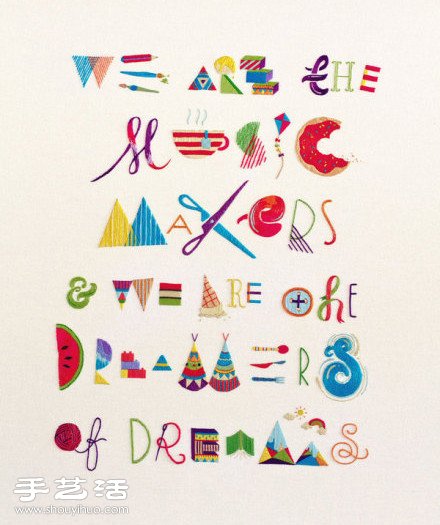 WE ARE THE
MUSiC
MAKERS
& WE ARE The
DREAMERS
of DREAMS
手艺活
www.shouyihuo.com